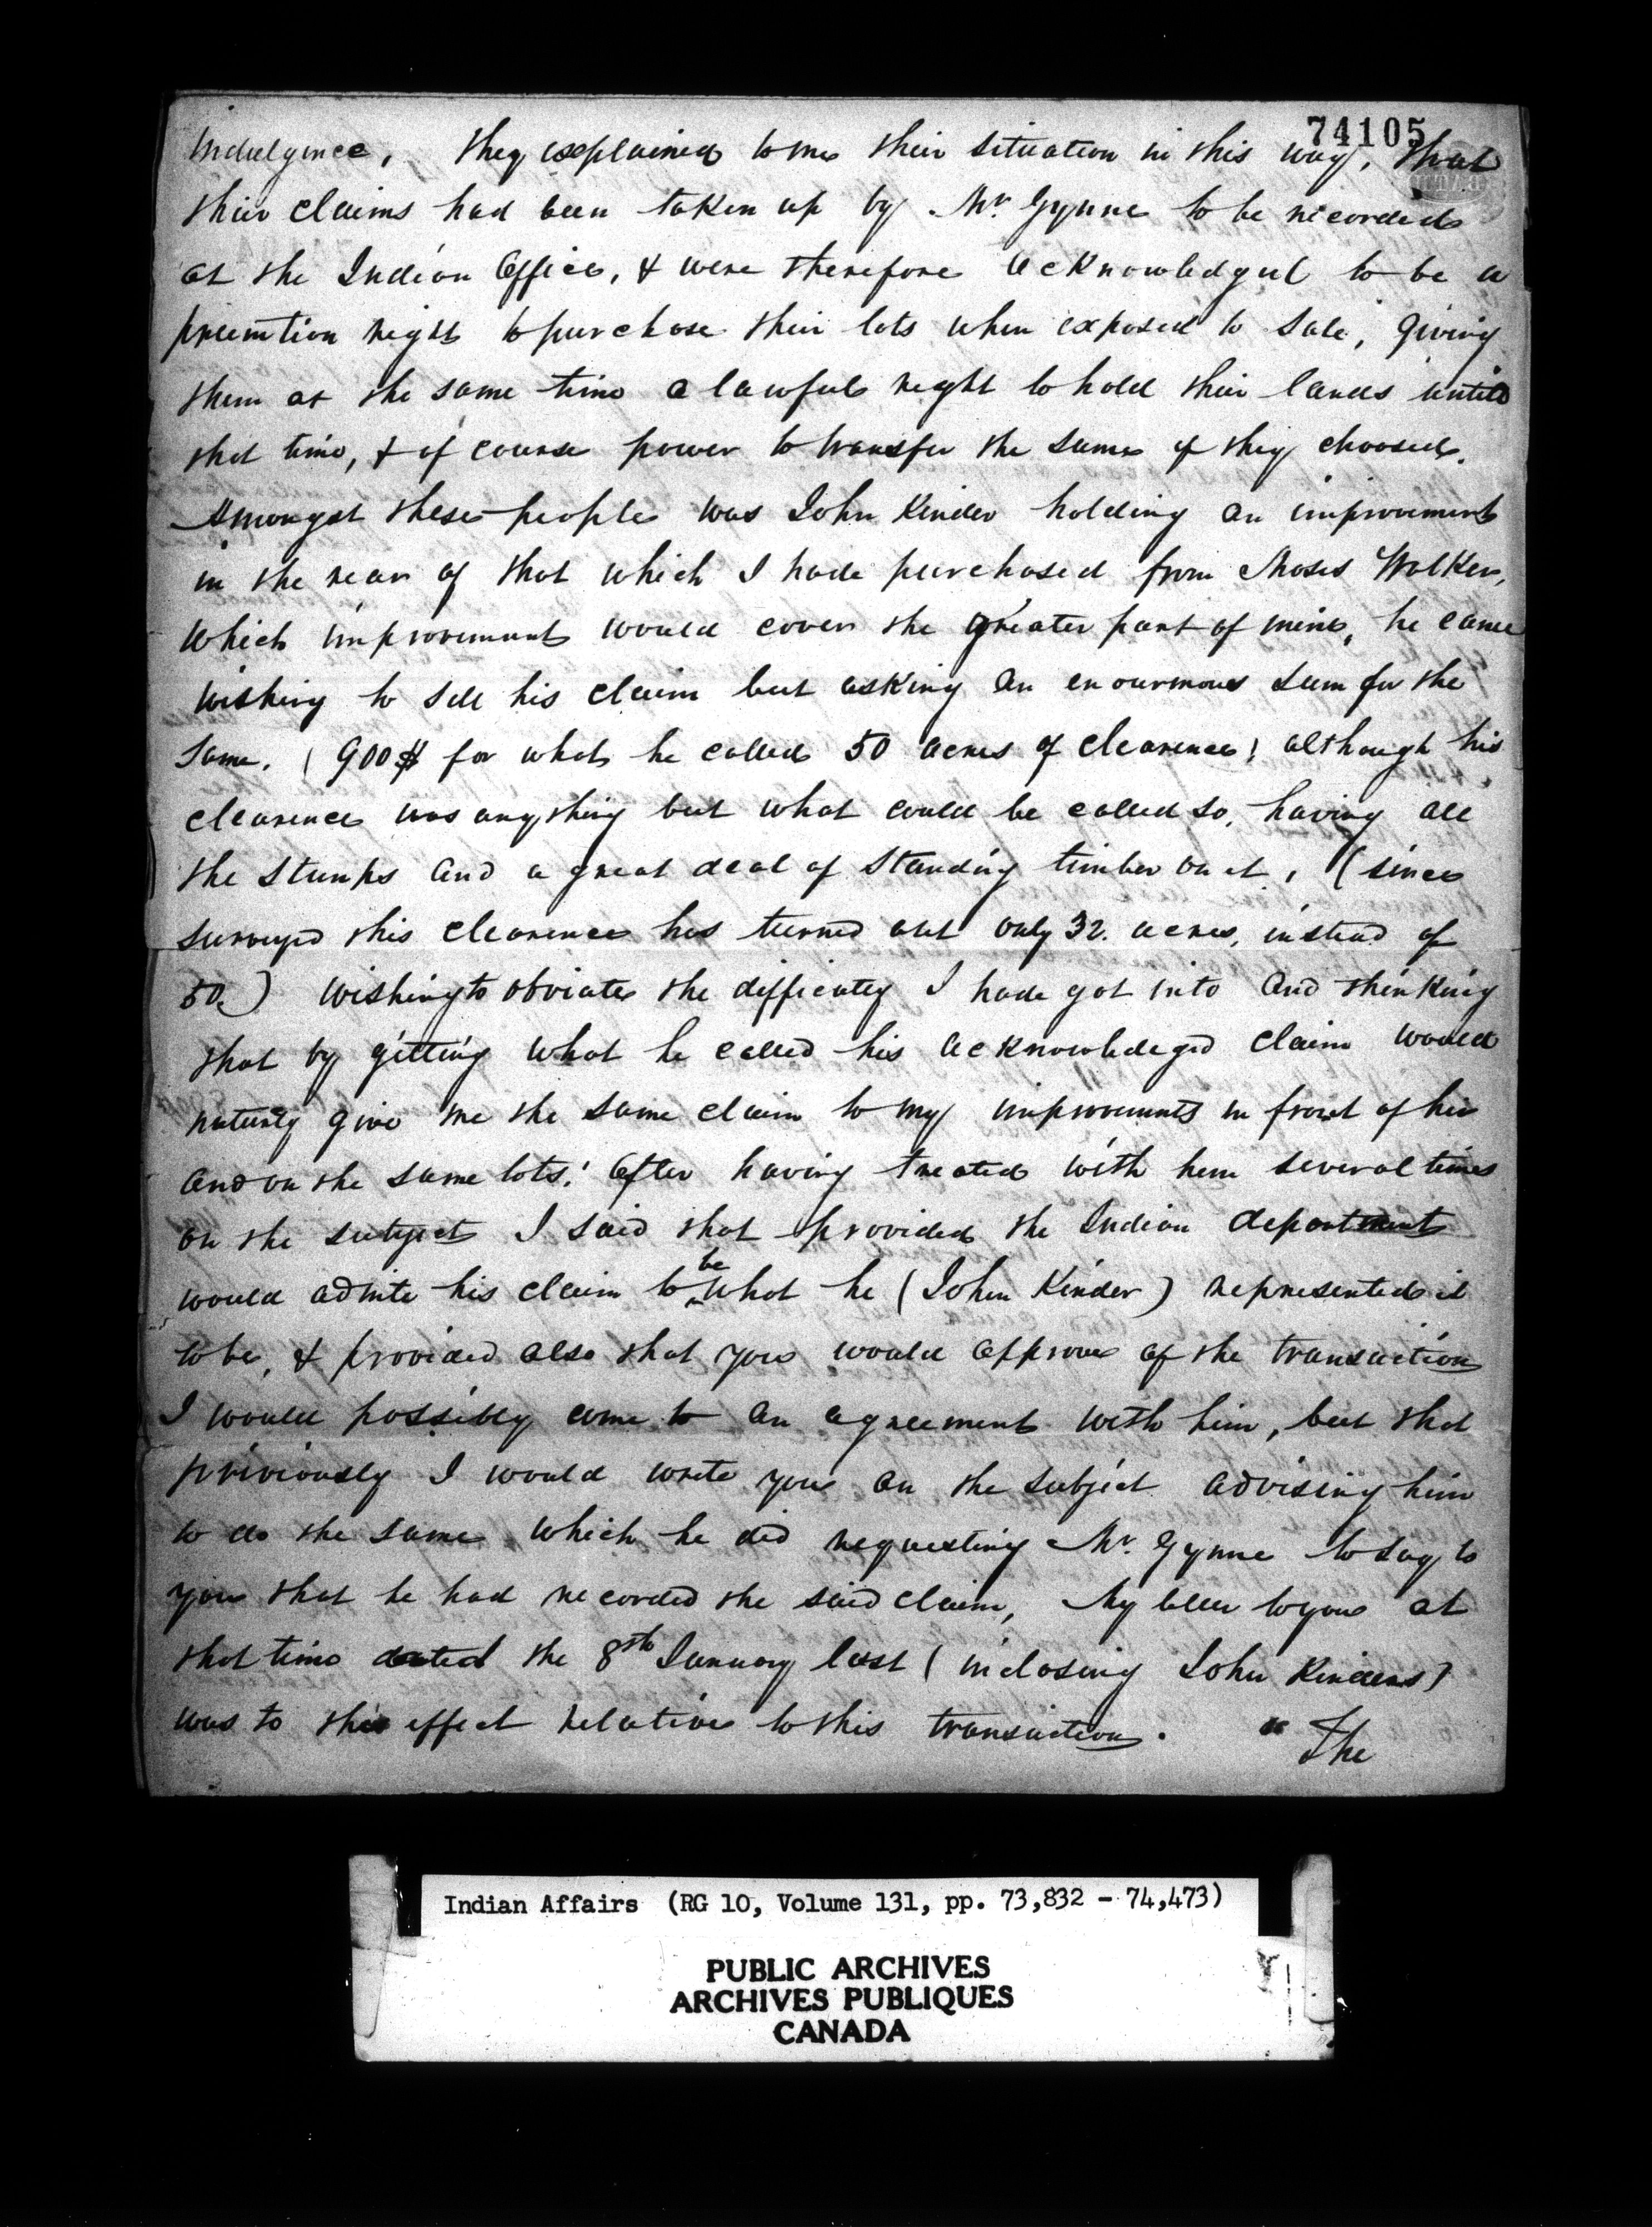 74105
Indulgence, they explained to me their situation in this way, that
their claims had been taken up by Mr. Gynne to be recorded
at the Indian Office, & were therefore acknowledged to be a
preemtion right to purchase their lots when exposed to sale, giving
them at the same time a lawful right to hold their lands until
that time, & of course power to transfer the same if they choosed.
Amongst these people was John Kinder holding an improvement
in the rear of that which I had purchased from Moses Walker,
which improvement would cover the greater part of mine, he came
wishing to sell his claim but asking an enourmous sum for the
same. (900$ for what he called 50 acres of clearence) although his
clearence was anything but what could be called so, having all
the stumps and a great deal of standing timber on it, (since
surveyed this clearence has turned out only 32. acres, instead of
50.) Wishing to obviate the difficulty I had got into and thinking
that by getting what he called his acknowledeged claim would
naturly give me the same claim to my improvements in front of his
and on the same lots! After having treated with him several times
on the subject I said that provided the Indian department
would admite his claim to be what he (John Kinder) represented it
to be, & provided also that you would approve of the transaction
I would possibly come to an agreement with him, but that
priviously I would write you on the subject advising him
to do the same which he did requesting Mr. Gynne to say to
you that he had recorded the said claim, My letter to you at
that time dated the 8th January last (inclosing John Kinders)
was to this effect relative to this transaction. " The
Indian Affairs (RG 10, Volume 131, pp. 73,832 - 74,473)
PUBLIC ARCHIVES
ARCHIVES PUBLIQUES
CANADA